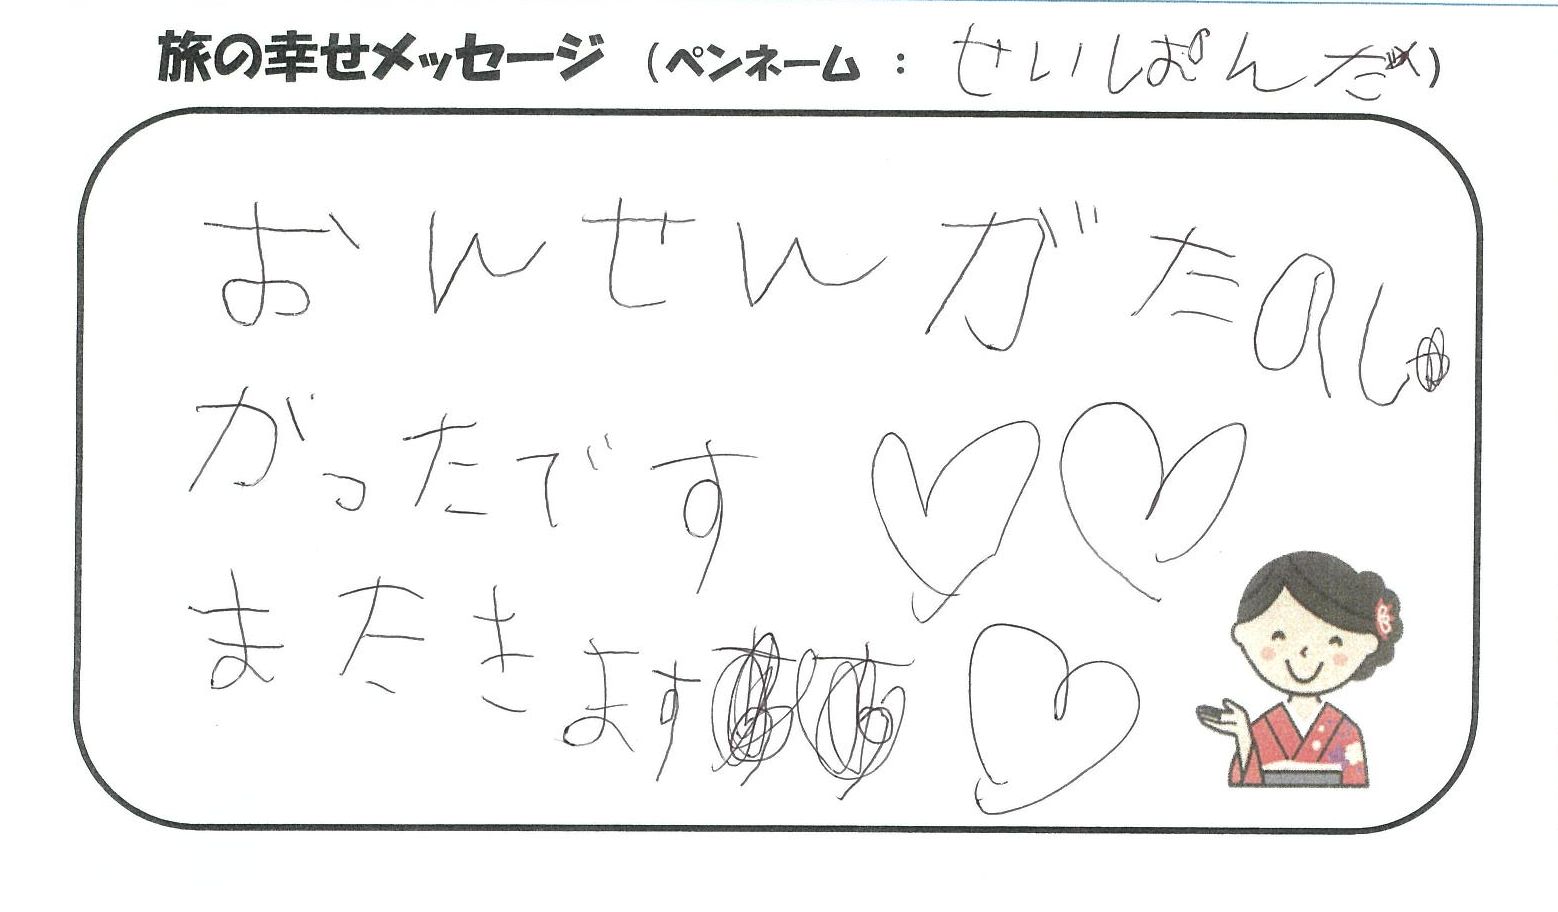 旅の幸せメッセージ (ペンネーム : せいしぱんだ)
おんせんがたのし
かったです
またきます